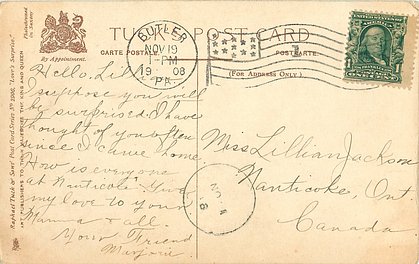 TUCK'S POST CARD
CARTE POSTALE.
POSTKARTE.
(FOR ADDRESS ONLY.)
By Appointment.
Raphael Tuck & Sons' Post Card Series
ART PUBLISHERS TO THEIR MAJESTIES THE KING AND QUEEN
BUTLER
NOV 19
1-PM
19 08
PA.
1
Hello, Lil,
I suppose you will
be surprised. I have
thought of you often
since I came home.
How is everyone
at Nanticoke. Give
my love to your
Mamma & all.
Your Friend
Marjorie
Miss Lillian Jackson
Nanticoke, Ont.
Canada